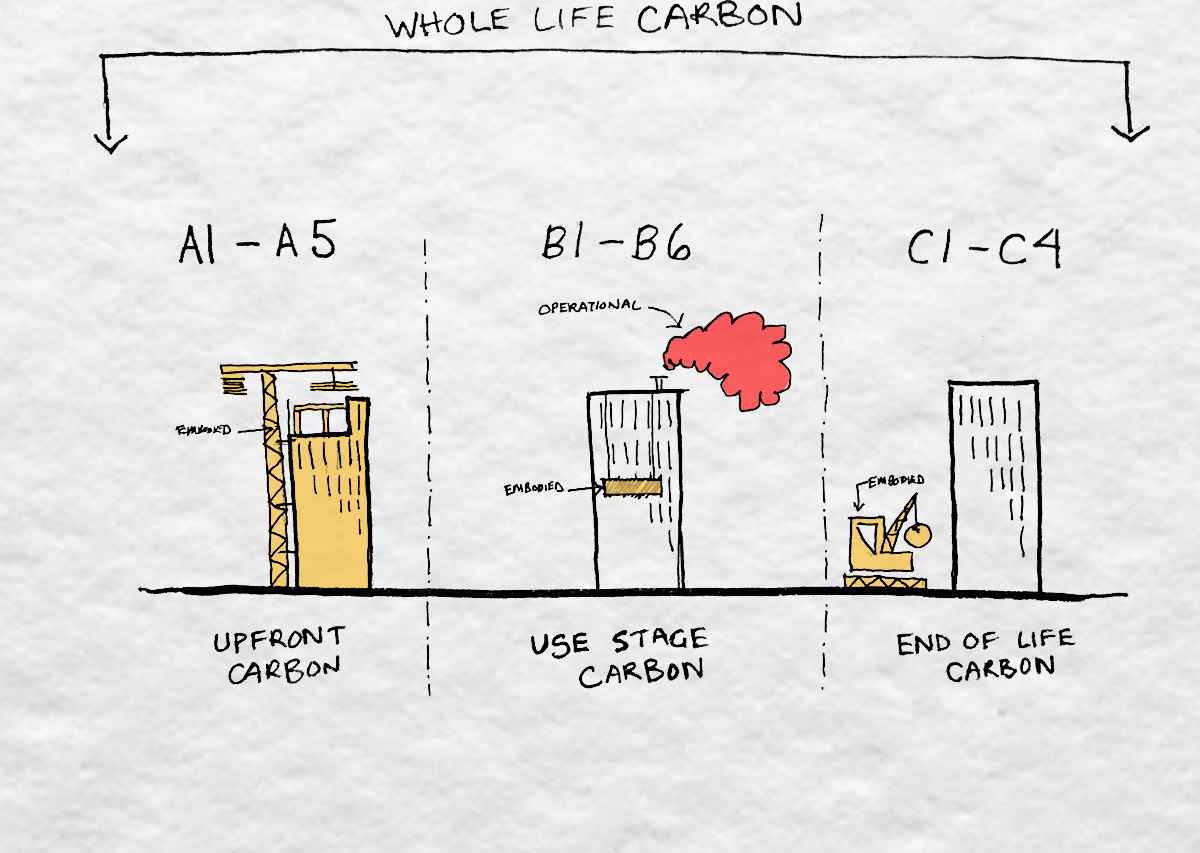 WHOLE LIFE CARBON
A1 - A5
B1 - B6
C1 - C4
OPERATIONAL
EMBODIED
EMBODIED
EMBODIED
UPFRONT
CARBON
USE STAGE
CARBON
END OF LIFE
CARBON